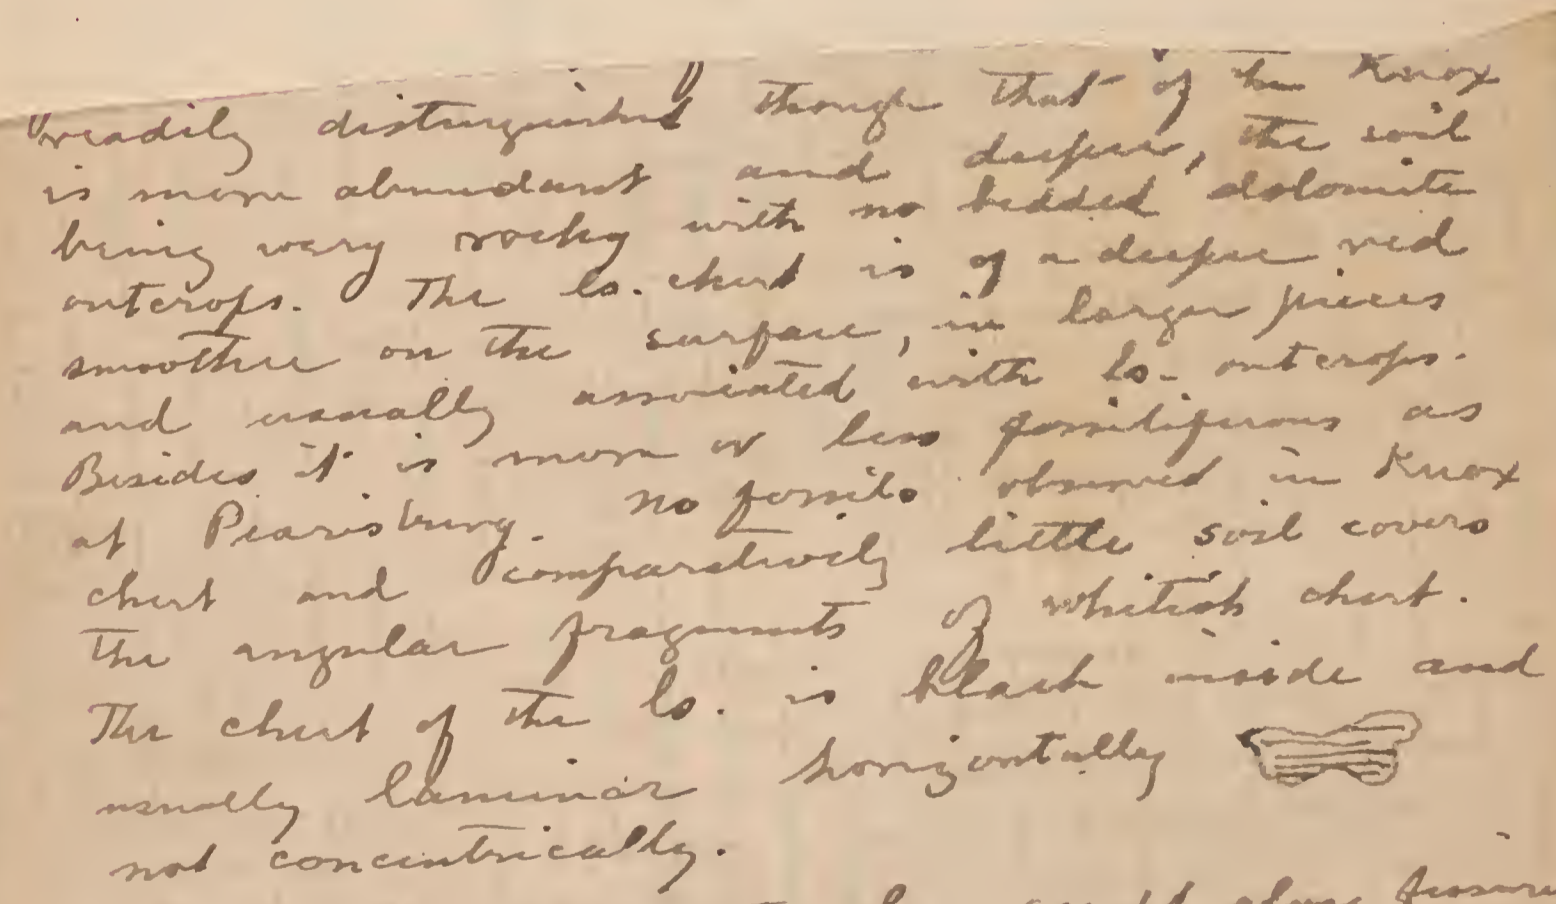 readily distinguished though that of the Knox
is more abundant and deeper, the soil
being very rocky with no bedded dolomite
outcrops. The ls. chert is of a deeper red
smoother on the surface, in larger pieces
and usually associated with ls. outcrops.
Besides it is more or less fossiliferous as
at Pearisburg. No fossils observed in Knox
chert and comparatively little soil covers
the angular fragments of whitish chert.
The chert of the ls. is black inside and
usually laminar horizontally
not concentrically.
along fissure